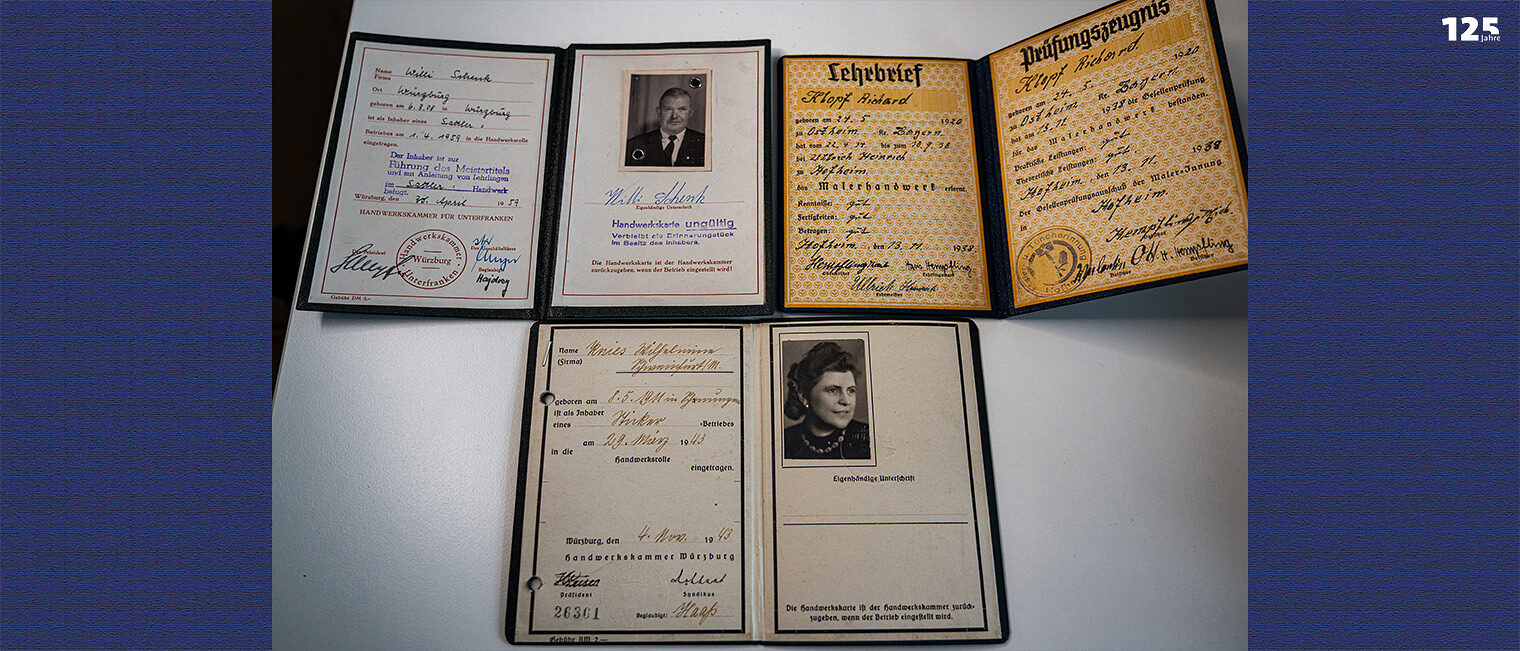 125
Jahre
Name Willi Schenk
Firma
Ort Würzburg
geboren am 6.8.08 in Würzburg
ist als Inhaber eines Sattler-
Betriebes am 1.4.1959 in die Handwerksrolle
eingetragen.
Der Inhaber ist zur
Führung des Meistertitels
und zur Anleitung von Lehrlingen
im Sattler- Handwerk
befugt.
Würzburg, den April 1959
HANDWERKSKAMMER FÜR UNTERFRANKEN
Präsident
Handwerkskammer
Würzburg
Unterfranken
Der Hauptgeschäftsführer
Beglaubigt:
Gebühr DM 5.-
Willi Schenk
Eigenhändige Unterschrift
Handwerkskarte ungültig
Verbleibt als Erinnerungsstück
im Besitz des Inhabers.
Die Handwerkskarte ist der Handwerkskammer
zurückzugeben, wenn der Betrieb eingestellt wird!
Lehrbrief
Klopf Richard
geboren am 24. 5. 1920
zu Ostheim Kr. Bayern
hat vom 22.4.34 bis zum 28.9.38
bei Ullrich Heinrich
zu Hofheim
das Malerhandwerk erlernt.
Kenntnisse: gut
Fertigkeiten: gut
Betragen: gut
Hofheim, den 13. 11. 1938
Hans Hempfling
Ullrich Heinrich
Lehrmeister
Prüfungszeugnis
Klopf Richard
geboren am 24. 5. 1920
zu Ostheim Kr. Bayern
hat am 13. 11. 1938 die Gesellenprüfung
für das Malerhandwerk bestanden.
Praktische Leistungen: gut
Theoretische Leistungen: gut
Hofheim, den 13. 11. 1938
Der Gesellenprüfungsausschuß der Maler-Innung
Hofheim.
H. Hempfling
Name Knies Wilhelmine
(Firma) Schweinfurt/M.
geboren am 8.5.1911 in
ist als Inhaber
eines Sticker -Betriebes
am 29. März 1943
in die
Handwerksrolle
eingetragen.
Würzburg, den 4. Nov. 1943
Handwerkskammer Würzburg
Präsident Syndikus
26301 Beglaubigt: Haaß
Gebühr RM 2.—
Eigenhändige Unterschrift
Die Handwerkskarte ist der Handwerkskammer zurück-
zugeben, wenn der Betrieb eingestellt wird.